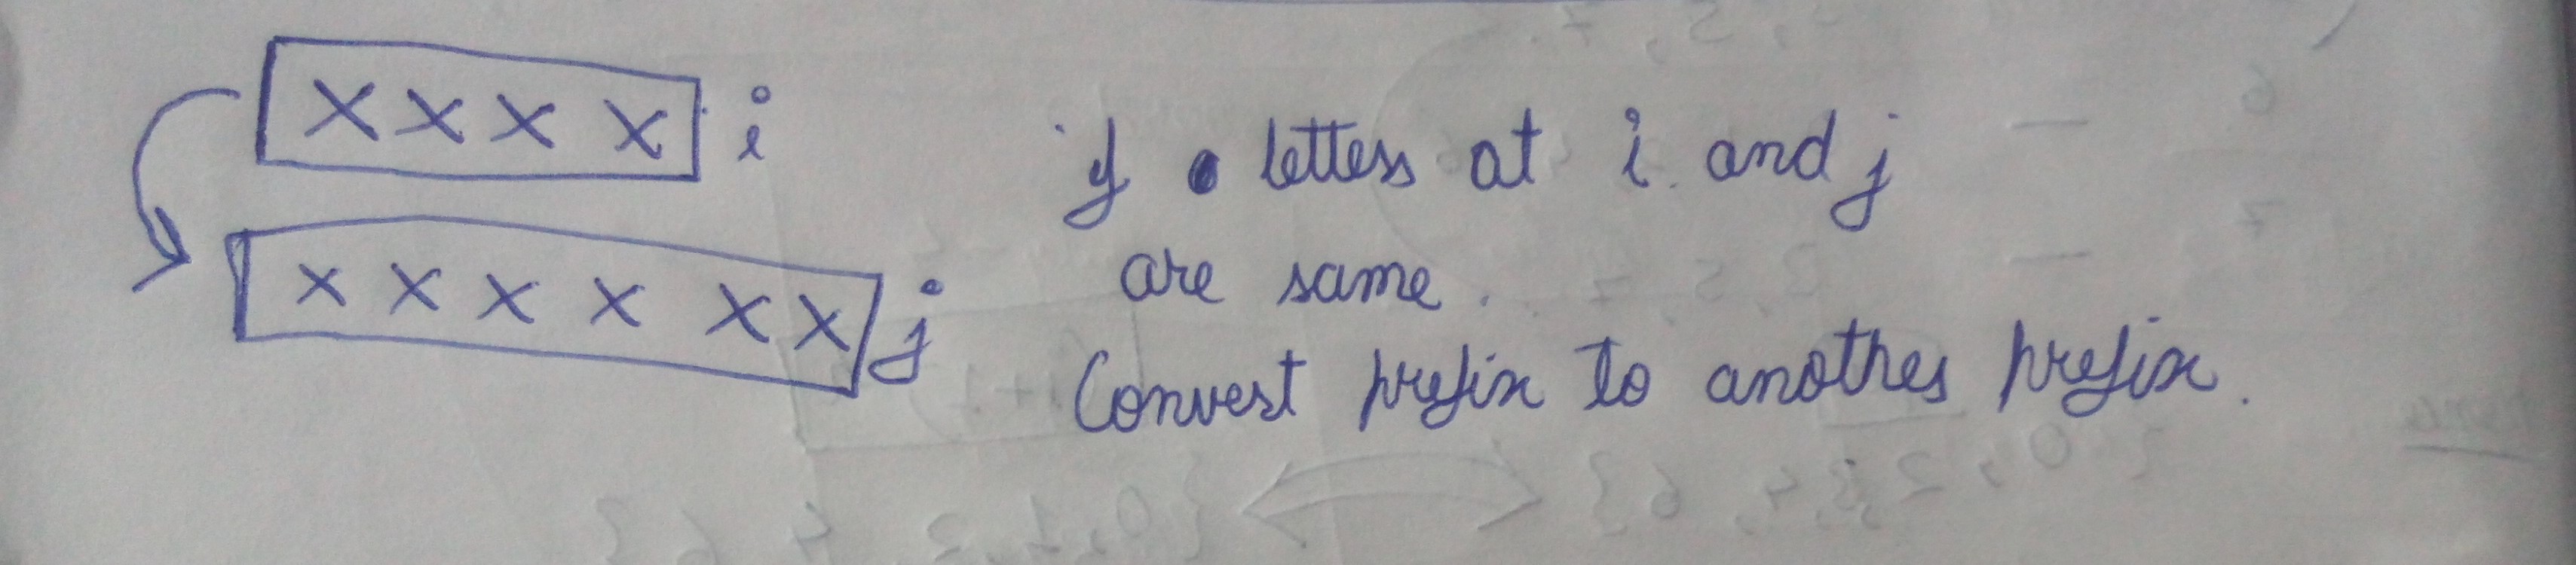 X X X X i
X X X X X X j
if letters at i and j
are same.
Convert prefix to another prefix.